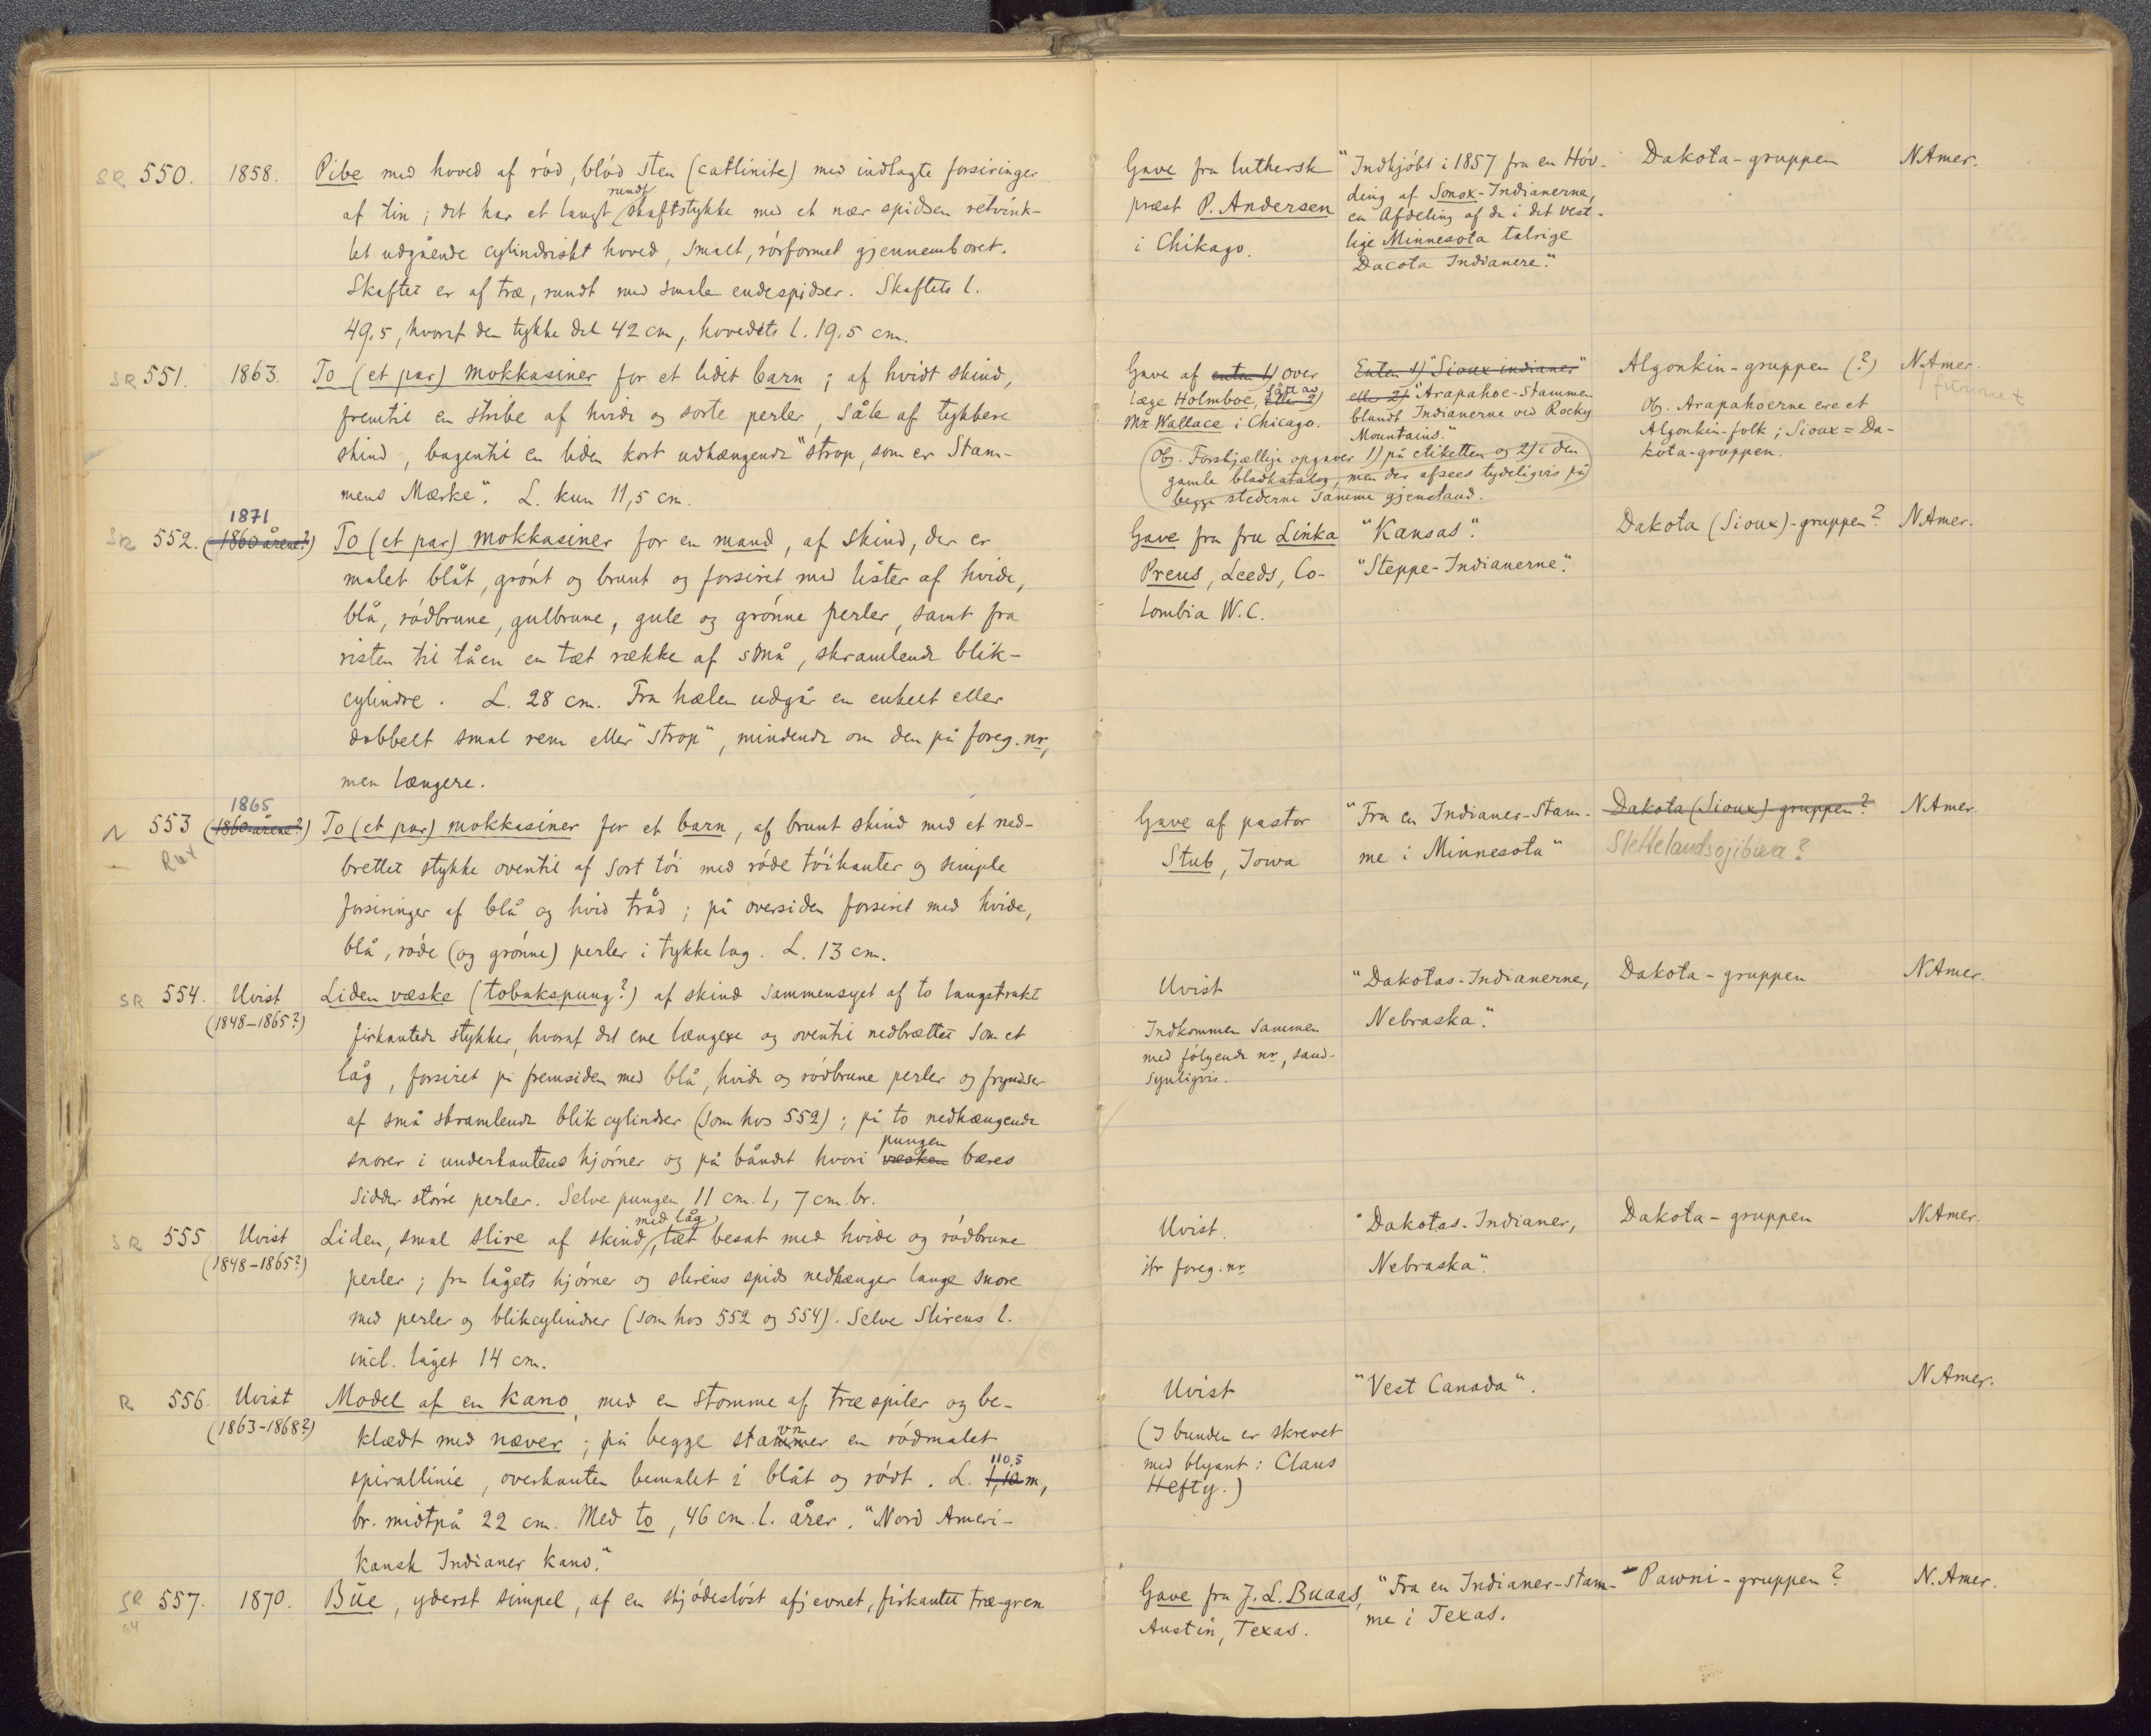 SR 550. 1858. Pibe med hoved af rød, blød sten (catlinite) med indlagte forsiringer
af tin; det har et langt rundt skaftstykke med et nær spidsen retvink-
let udgående cylindriskt hoved, smalt, rørformet gjennemboret.
Skaftet er af træ, rundt med smale endespidser. Skaftets l.
49,5, hvoraf den tykke del 42 cm, hovedets l. 19,5 cm.
Gave fra luthersk
præst P. Andersen
i Chikago.
"Indkjøbt i 1857 fra en Høv-
ding af Sonox-Indianerne,
en Afdeling af de i det vest-
lige Minnesota talrige
Dacota Indianere."
Dakota-gruppen
N.Amer.
SR 551. 1863. To (et par) mokkasiner for et lidet barn; af hvidt skind,
fremtil en stribe af hvide og sorte perler, såle af tykkere
skind, bagentil en liden kort udhængende "strop, som er Stam-
mens Mærke". L. kun 11,5 cm.
Gave af enten 1) over
læge Holmboe, eller 2)
Mr Wallace i Chicago.
Enten 1) "Sioux indianer"
eller 2) "Arapahoe-Stammen
blandt Indianerne ved Rocky
Mountains."
(Obs. Forskjællige opgaver 1) på etiketten og 2) i den
gamle bladkatalog, men der afsees tydeligvis på
begge stederne samme gjenstand.)
Algonkin-gruppen (?)
Obs. Arapahoerne ere et
Algonkin-folk; Sioux = Da-
kota-gruppen.
N.Amer.
funnet
SR 552. 1871 (1860 årene?) To (et par) mokkasiner for en mand, af skind, der er
malet blåt, grønt og brunt og forsiret med lister af hvide,
blå, rødbrune, gulbrune, gule og grønne perler, samt fra
risten til tåen en tæt række af små, skramlende blik-
cylindre. L. 28 cm. Fra hælen udgår en enkelt eller
dobbelt smal rem eller "strop", mindende om den på foreg. nr,
men længere.
Gave fra fru Linka
Preus, Leeds, Co-
lombia W.C.
"Kansas".
"Steppe-Indianerne".
Dakota (Sioux)-gruppen?
N.Amer.
N 553 1865 (1860-årene?) To (et par) mokkasiner for et barn, af brunt skind med et ned-
brettet stykke oventil af sort tøi med røde tøikanter og simple
forsiringer af blå og hvid tråd; på oversiden forsiret med hvide,
blå, røde (og grønne) perler i tykke lag. L. 13 cm.
Gave af pastor
Stub, Iowa
"Fra en Indianer-Stam-
me i Minnesota"
Dakota (Sioux) gruppen?
Slettelandsojibwa?
N.Amer.
SR 554. Uvist (1848-1865?) Liden væske (tobakspung?) af skind sammensyet af to langstrakt
firkantede stykker, hvoraf det ene længere og oventil nedbrættet som et
låg, forsiret på fremsiden med blå, hvide og rødbrune perler og fryndser
af små skramlende blikcylindre (som hos 552); på to nedhængende
snorer i underkantens hjørner og på båndet hvori væsken pungen bæres
sidder større perler. Selve pungen 11 cm. l, 7 cm. br.
Uvist
Indkommen sammen
med følgende nr, sand-
synligvis.
"Dakotas-Indianerne,
Nebraska".
Dakota-gruppen
N.Amer.
SR 555 Uvist (1848-1865?) Liden, smal slire af skind med låg, tæt besat med hvide og rødbrune
perler; fra lågets hjørner og slirens spids nedhænger lange snore
med perler og blikcylindrer (som hos 552 og 554). Selve Slirens l.
incl. låget 14 cm.
Uvist.
jfr foreg. nr
"Dakotas-Indianer,
Nebraska".
Dakota-gruppen
N.Amer.
R 556. Uvist (1863-1868?) Model af en kano, med en stomme af træspiler og be-
klædt med næver; på begge stavner en rødmalet
spirallinie, overkanten bemalet i blåt og rødt. L. 1,10 m, 110,5
br. midtpå 22 cm. Med to, 46 cm. l. årer. "Nord Ameri-
kansk Indianer kano."
Uvist
(I bunden er skrevet
med blyant: Claus
Hefty.)
"Vest Canada".
N.Amer.
SR 557. 1870. Bue, yderst simpel, af en skjødesløst afjevnet, firkantet træ-gren
64
Gave fra J. L. Buaas,
Austin, Texas.
"Fra en Indianer-stam-
me i Texas.
Pawni-gruppen?
N.Amer.